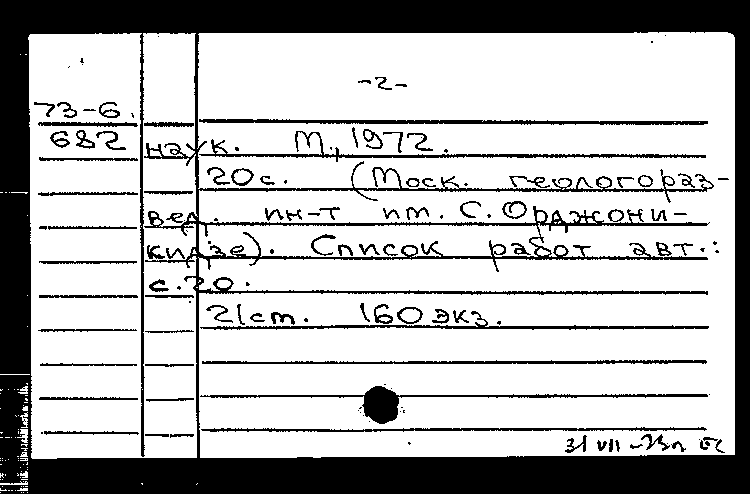 -2-
73-6.
682 наук. М., 1972.
20с. (Моск. геологораз-
вед. ин-т им. С. Орджони-
кидзе). Список работ авт.:
с.20.
21см. 160 экз.
31 VII -73г.